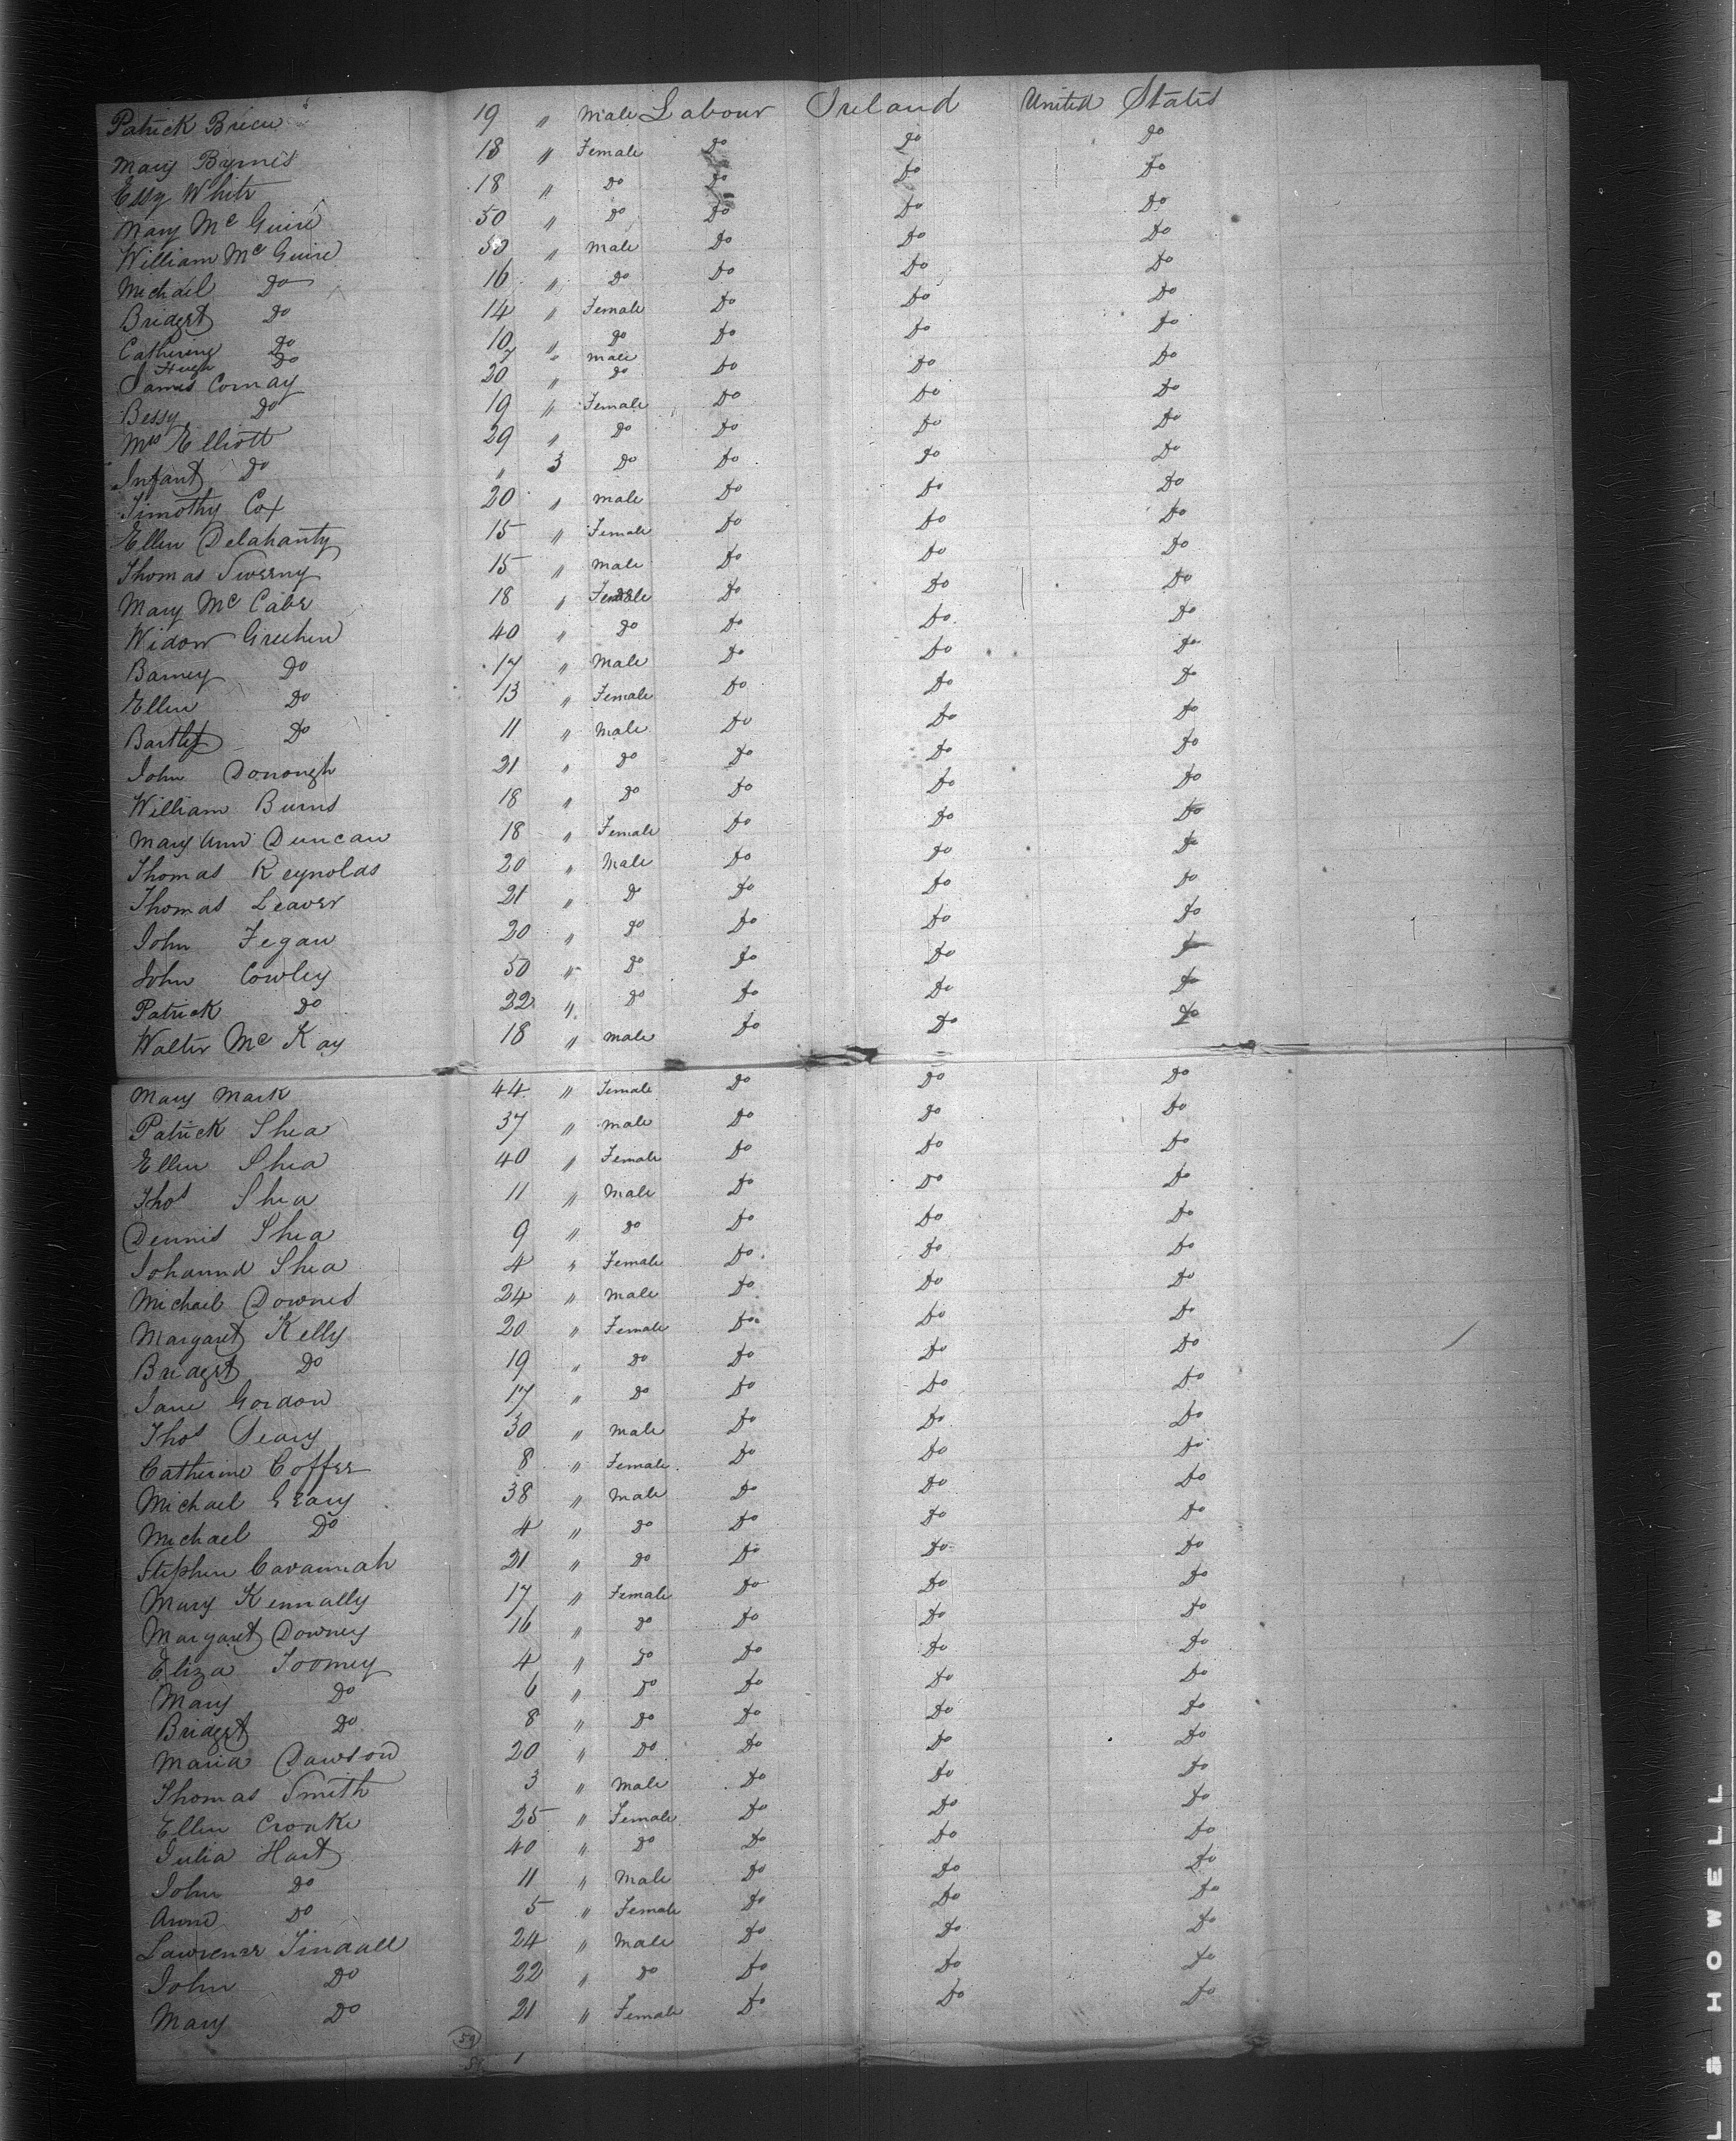 Patrick Brien 19 " Male Labour Ireland United States
Mary Byrnes 18 " Female Do Do Do
Essy White 18 " Do Do Do Do
Mary Mc Guire 50 " Do Do Do Do
William Mc Guire 50 " Male Do Do Do
Michael Do 16 " Do Do Do Do
Bridget Do 14 " Female Do Do Do
Catherine Do 10 " Do Do Do Do
Hugh Do 7 " Male
James Conway 20 " Do Do Do Do
Bessy Do 19 " Female Do Do Do
Mrs Elliott 29 " Do Do Do Do
Infant Do " 3 Do Do Do Do
Timothy Cox 20 " Male Do Do Do
Ellen Delahanty 15 " Female Do Do Do
Thomas Sweeny 15 " Male Do Do Do
Mary Mc Cabe 18 " Female Do Do Do
Widow Greehen 40 " Do Do Do Do
Barney Do 17 " Male Do Do Do
Ellen Do 13 " Female Do Do Do
Bartly Do 11 " Male Do Do Do
John Donough 21 " Do Do Do Do
William Burns 18 " Do Do Do Do
Mary Ann Duncan 18 " Female Do Do Do
Thomas Reynolds 20 " Male Do Do Do
Thomas Leaver 21 " D Do Do Do
John Fegan 20 " Do Do Do Do
John Cowley 50 " Do Do Do Do
Patrick Do 22 " Do Do Do Do
Walter Mc Kay 18 " Male Do Do Do
Mary Mark 44 " Female Do Do Do
Patrick Shea 37 " Male Do Do Do
Ellen Shea 40 " Female Do Do Do
Thos Shea 11 " Male Do Do Do
Dennis Shea 9 " Do Do Do Do
Johanna Shea 4 " Female Do Do Do
Michael Downes 24 " Male Do Do Do
Margaret Kelly 20 " Female Do Do Do
Bridget Do 19 " Do Do Do Do
Jane Gordon 17 " Do Do Do Do
Thos Deary 30 " Male Do Do Do
Catherine Coffee 8 " Female Do Do Do
Michael Geary 38 " Male Do Do Do
Michael Do 4 " Do Do Do Do
Stephen Cavannah 21 " Do Do Do Do
Mary Kennally 17 " Female Do Do Do
Margaret Downey 16 " Do Do Do Do
Eliza Toomey 4 " Do Do Do Do
Mary Do 6 " Do Do Do Do
Bridget Do 8 " Do Do Do Do
Maria Dawson 20 " Do Do Do Do
Thomas Smith 3 " Male Do Do Do
Ellen Croake 25 " Female Do Do Do
Julia Hart 40 " Do Do Do Do
John Do 11 " Male Do Do Do
Anne Do 5 " Female Do Do Do
Lawrence Tindall 24 " Male Do Do Do
John Do 22 " Do Do Do Do
Mary Do 21 " Female Do Do Do
59
L & HOWELL